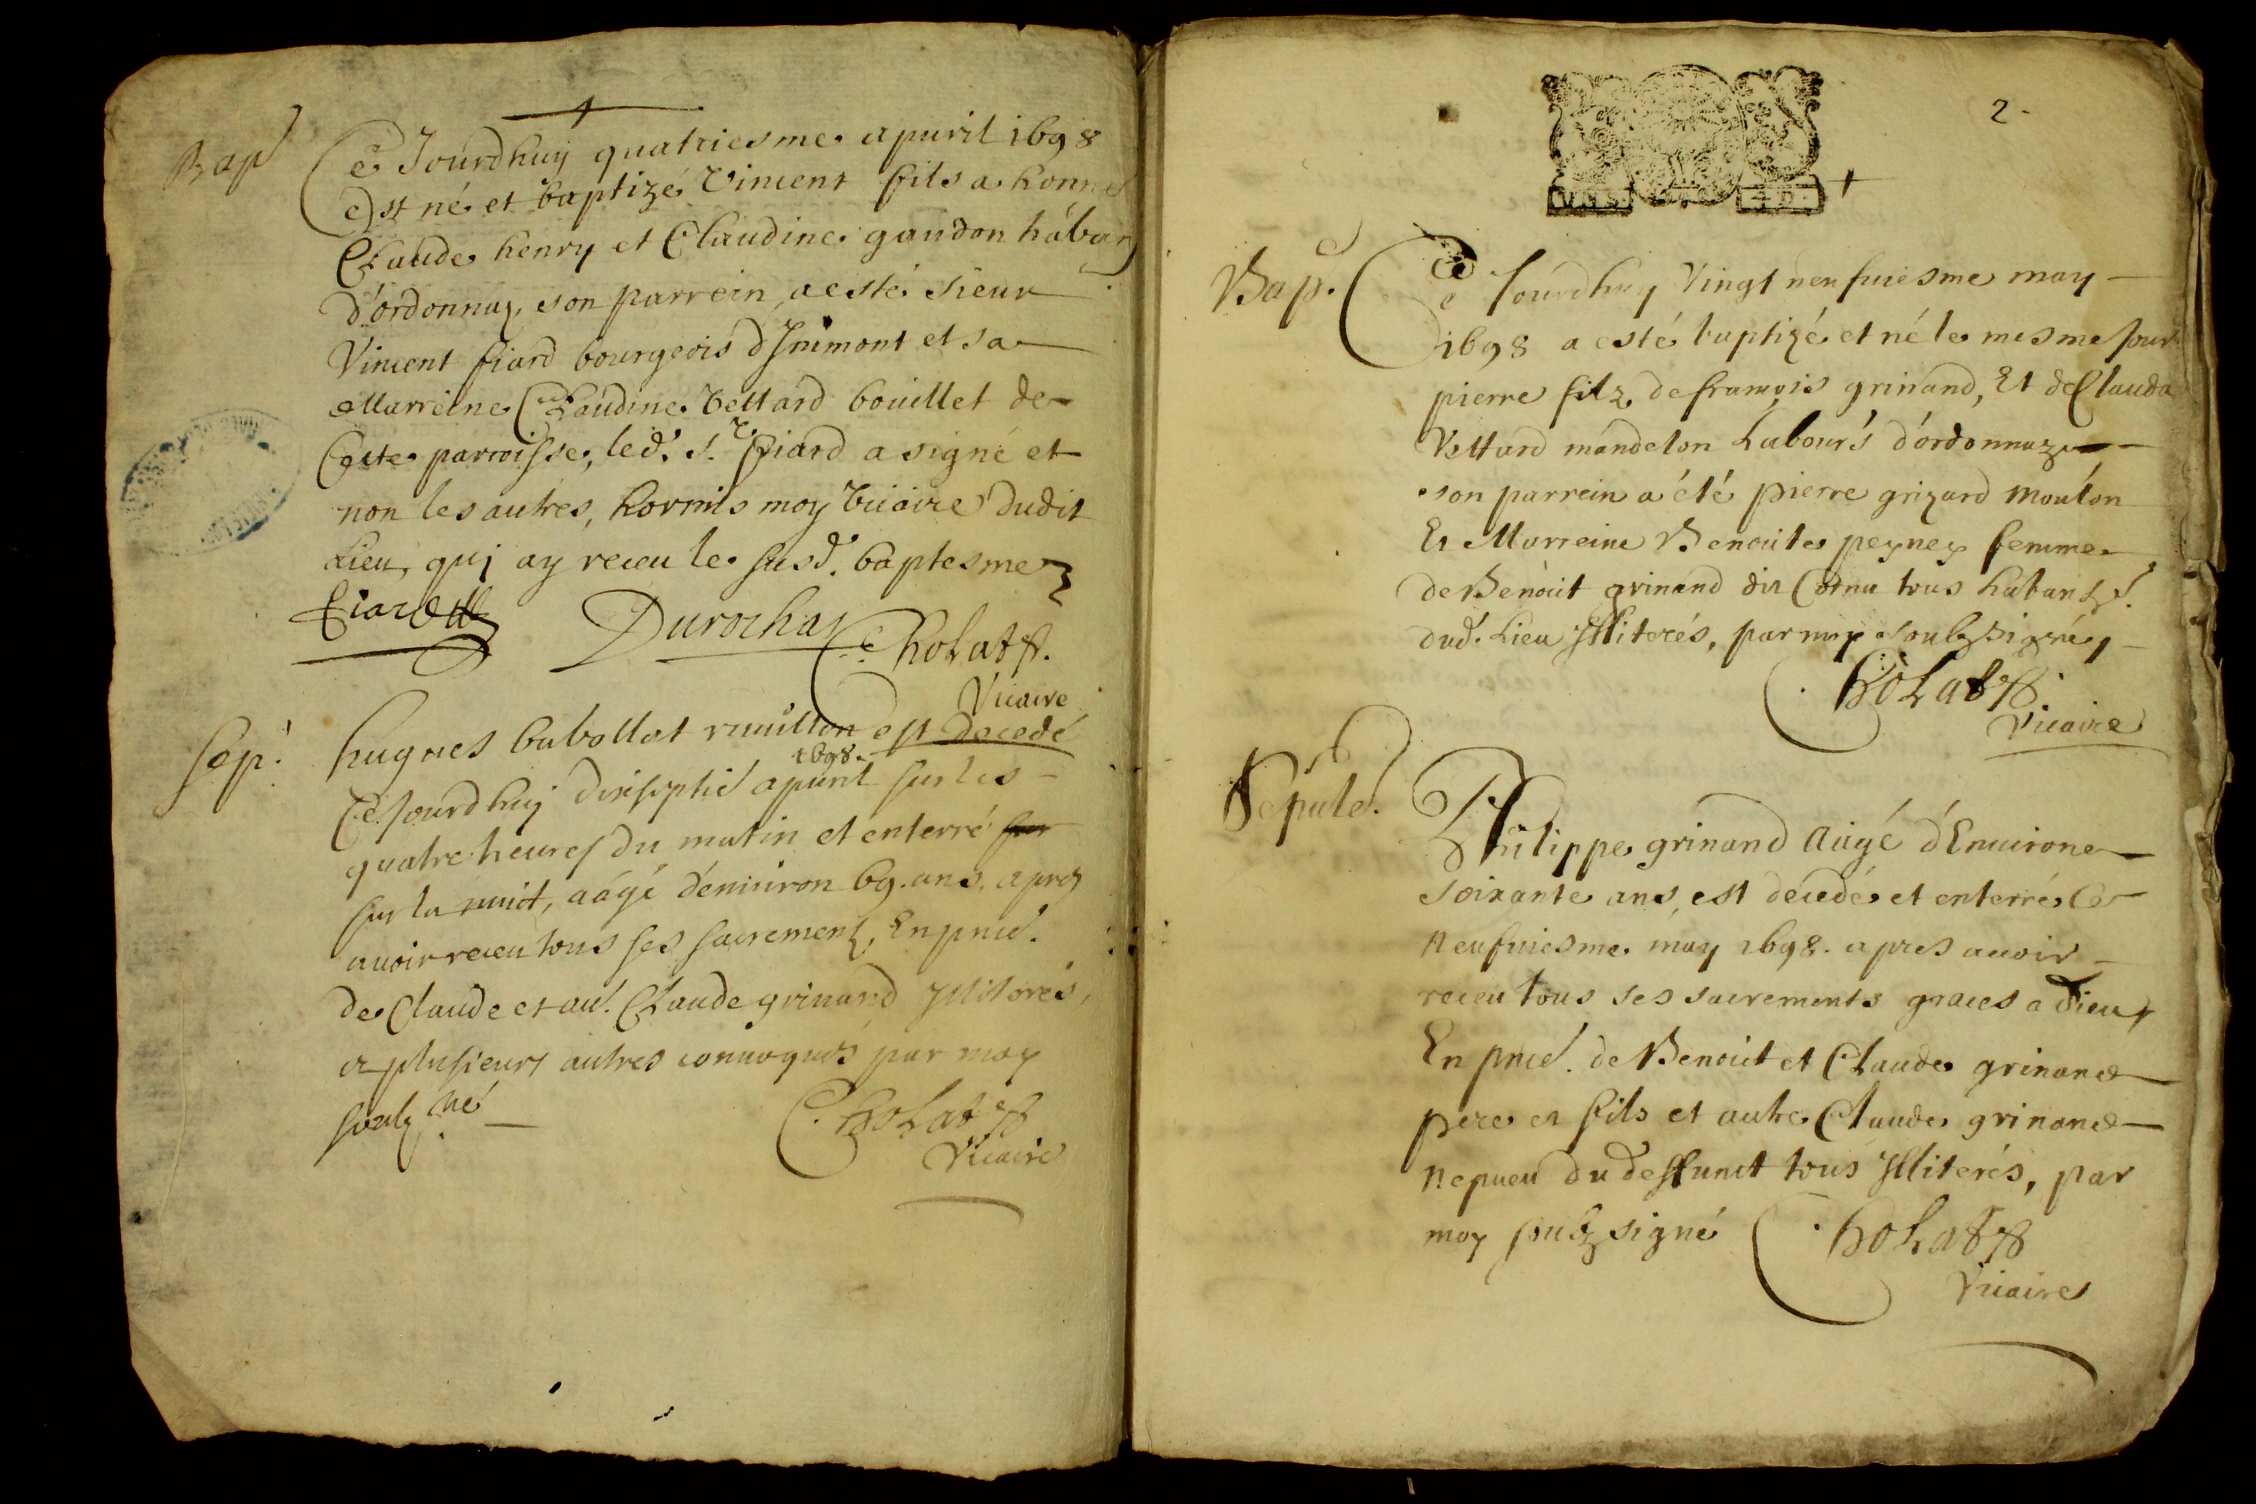 Bap
Ce Jourdhuy quatriesme apuril 1698
Est né et baptizé Vincent fils a honne
Claude henry et Claudine gaudon hában
d'ordonnaz, son parrein a esté sieur
Vincent fiard bourgeois d'Inimont et sa
Marreine Claudine Vettard bouillet de
Cette parroisse, led. s.r fiard a signé et
non les autres, hormis moy Vicaire dudit
Lieu, quj ay receu le susd. baptesme
fiard Durochat Cholatt.
Vicaire
Sep.
hugues babollat est decedé
1698.
Ce Jourdhuj dixseptié apuril sur les
quatre heures du matin et enterré sur
sur la nuict, aagé d'enuiron 69. ans. apres
auoir receu tous ses sacremens, En pnce.
de Claude et au. Claude grinand Illiterés,
et plusieurs autres conuoqués par moy
soulz.né
Cholatt
Vicaire
2.
Bap.
Ce Jourdhuy Vingt neufuiesme may
1698 a esté baptizé et né le mesme Jour
pierre filz de françois grinand, Et de Clauda
Vettard mandelon Labour.s d'ordonnaz
son parrein a été pierre grizard mouton
Et Marreine Benoite peyney femme
de Benoit grinand dit Cornu tous habants.
dud. Lieu Illiterés, par moy soulz signé,
Cholatt.
Vicaire
Sepule.
Philippe grinand Aagé d'Enuirone
soixante ans, est décedé et enterré Ce
Neufuiesme may 1698. apres auoir
receu tous ses sacrements graces a Dieu,
En pnce. de Benoict et Claude grinand
pere et fils et autre Claude grinand
Nepueu du deffunct tous Illiterés, par
moy soubz signé Cholatt
Vicaire